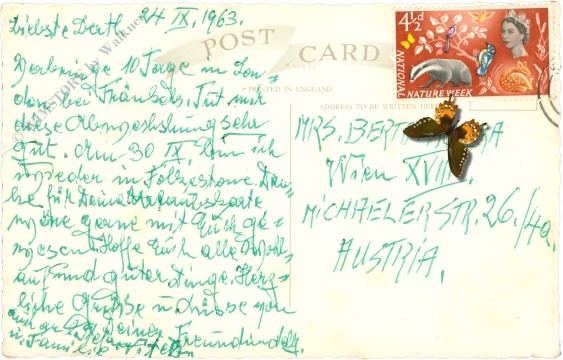 24 IX. 1963.
Liebste Berth
Verbringe 10 Tage in Lon=
don bei Fräunds. Tut mir
diese Abwechslung sehr
gut. Am 30 IX. bin ich
wieder in Felixstowe. Dan=
ke für Deine Urlaubskarte
wäre gerne mit Euch ge=
wesen. Hoffe Euch alle wohl=
auf und guter Dinge. Herz=
liche Grüsse u. Küsse von
Deiner Freundin
u. Familie
POST CARD
PRINTED IN ENGLAND
ADDRESS TO BE WRITTEN HERE
4½d
NATIONAL NATURE WEEK
MRS. BERTHA
Wien XVIII.
MICHAELERSTR. 26./4a.
AUSTRIA.